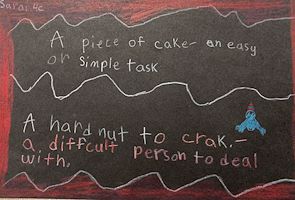 Sarai.4c
A piece of cake- an easy
or simple task
A hard nut to crak.-
a diffcult person to deal
with.